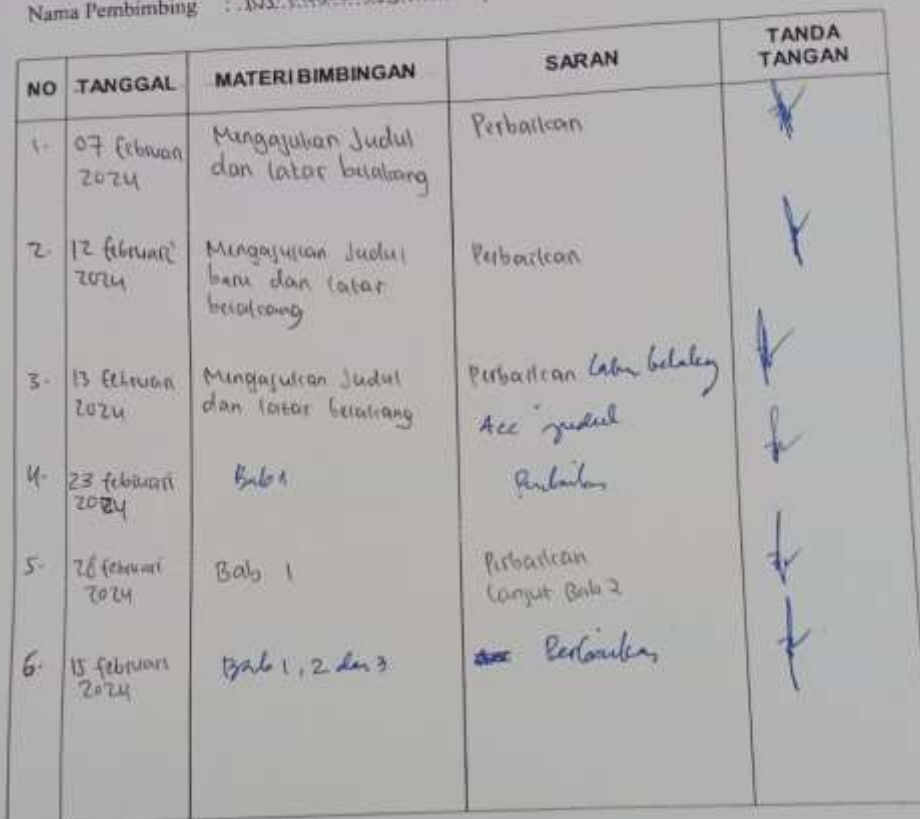 Nama Pembimbing :
NO TANGGAL MATERI BIMBINGAN SARAN TANDA TANGAN
1. 07 februari 2024 Mengajukan Judul dan latar belakang Perbaikan
2. 12 februari 2024 Mengajukan Judul baru dan latar belakang Perbaikan
3. 13 februari 2024 Mengajukan Judul dan latar belakang Perbaikan latar belakang
Acc judul
4. 23 februari 2024 Bab 1 Perbaikan
5. 28 februari 2024 Bab 1 Perbaikan
Lanjut Bab 2
6. 15 februari 2024 Bab 1, 2 dan 3 Perbaikan